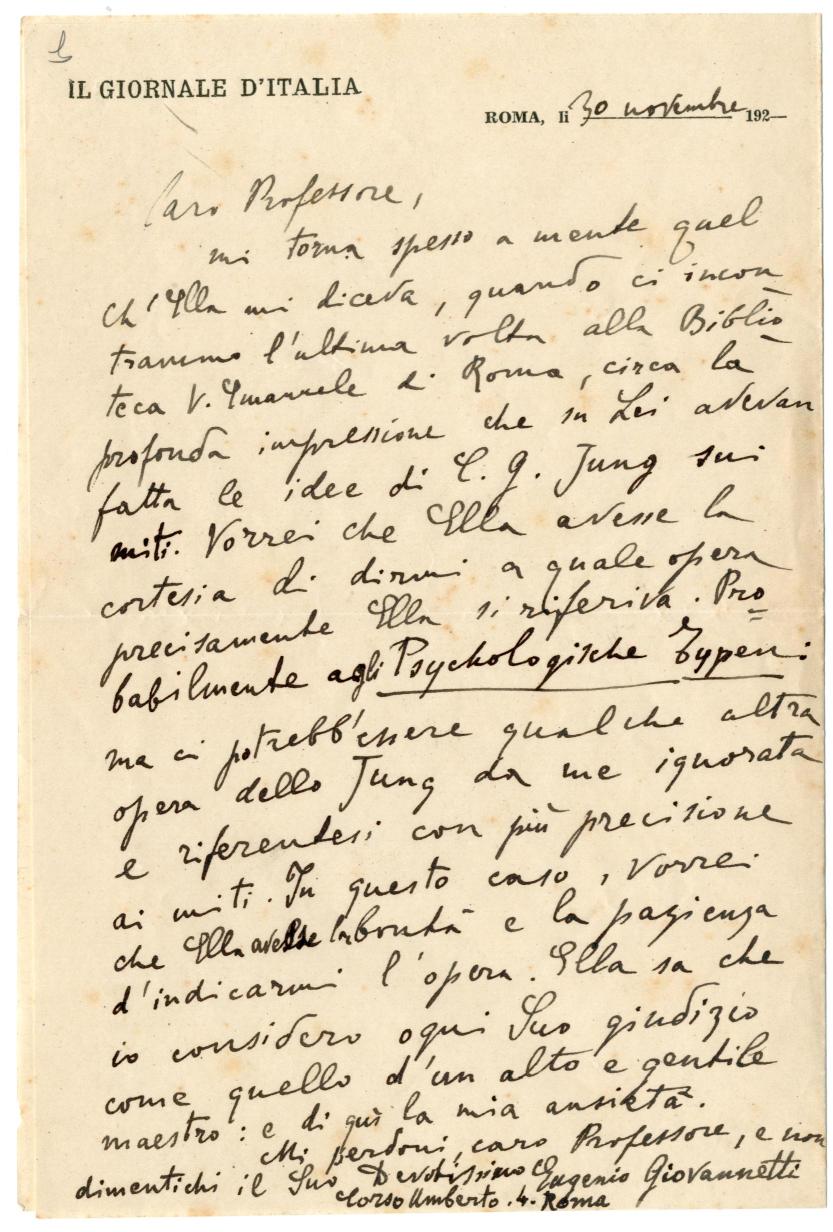 IL GIORNALE D'ITALIA
ROMA, li 30 novembre 192
Caro Professore,
mi torna spesso a mente quel
ch'Ella mi diceva, quando ci incon
trammo l'ultima volta alla Biblio
teca V. Emanuele di Roma, circa la
profonda impressione che su Lei avevan
fatta le idee di C. G. Jung sui
miti. Vorrei che Ella avesse la
cortesia di dirmi a quale opera
precisamente Ella si riferiva. Pro=
babilmente agli Psychologische Typen:
ma ci potrebb'essere qualche altra
opera dello Jung da me ignorata
e riferentesi con più precisione
ai miti. In questo caso, vorrei
che Ella avesse la bontà e la pazienza
d'indicarmi l'opera. Ella sa che
io considero ogni Suo giudizio
come quello d'un alto e gentile
maestro: e di qui la mia ansietà.
Mi perdoni, caro Professore, e non
dimentichi il Suo Devotissimo Eugenio Giovannetti
Corso Umberto. 4. Roma